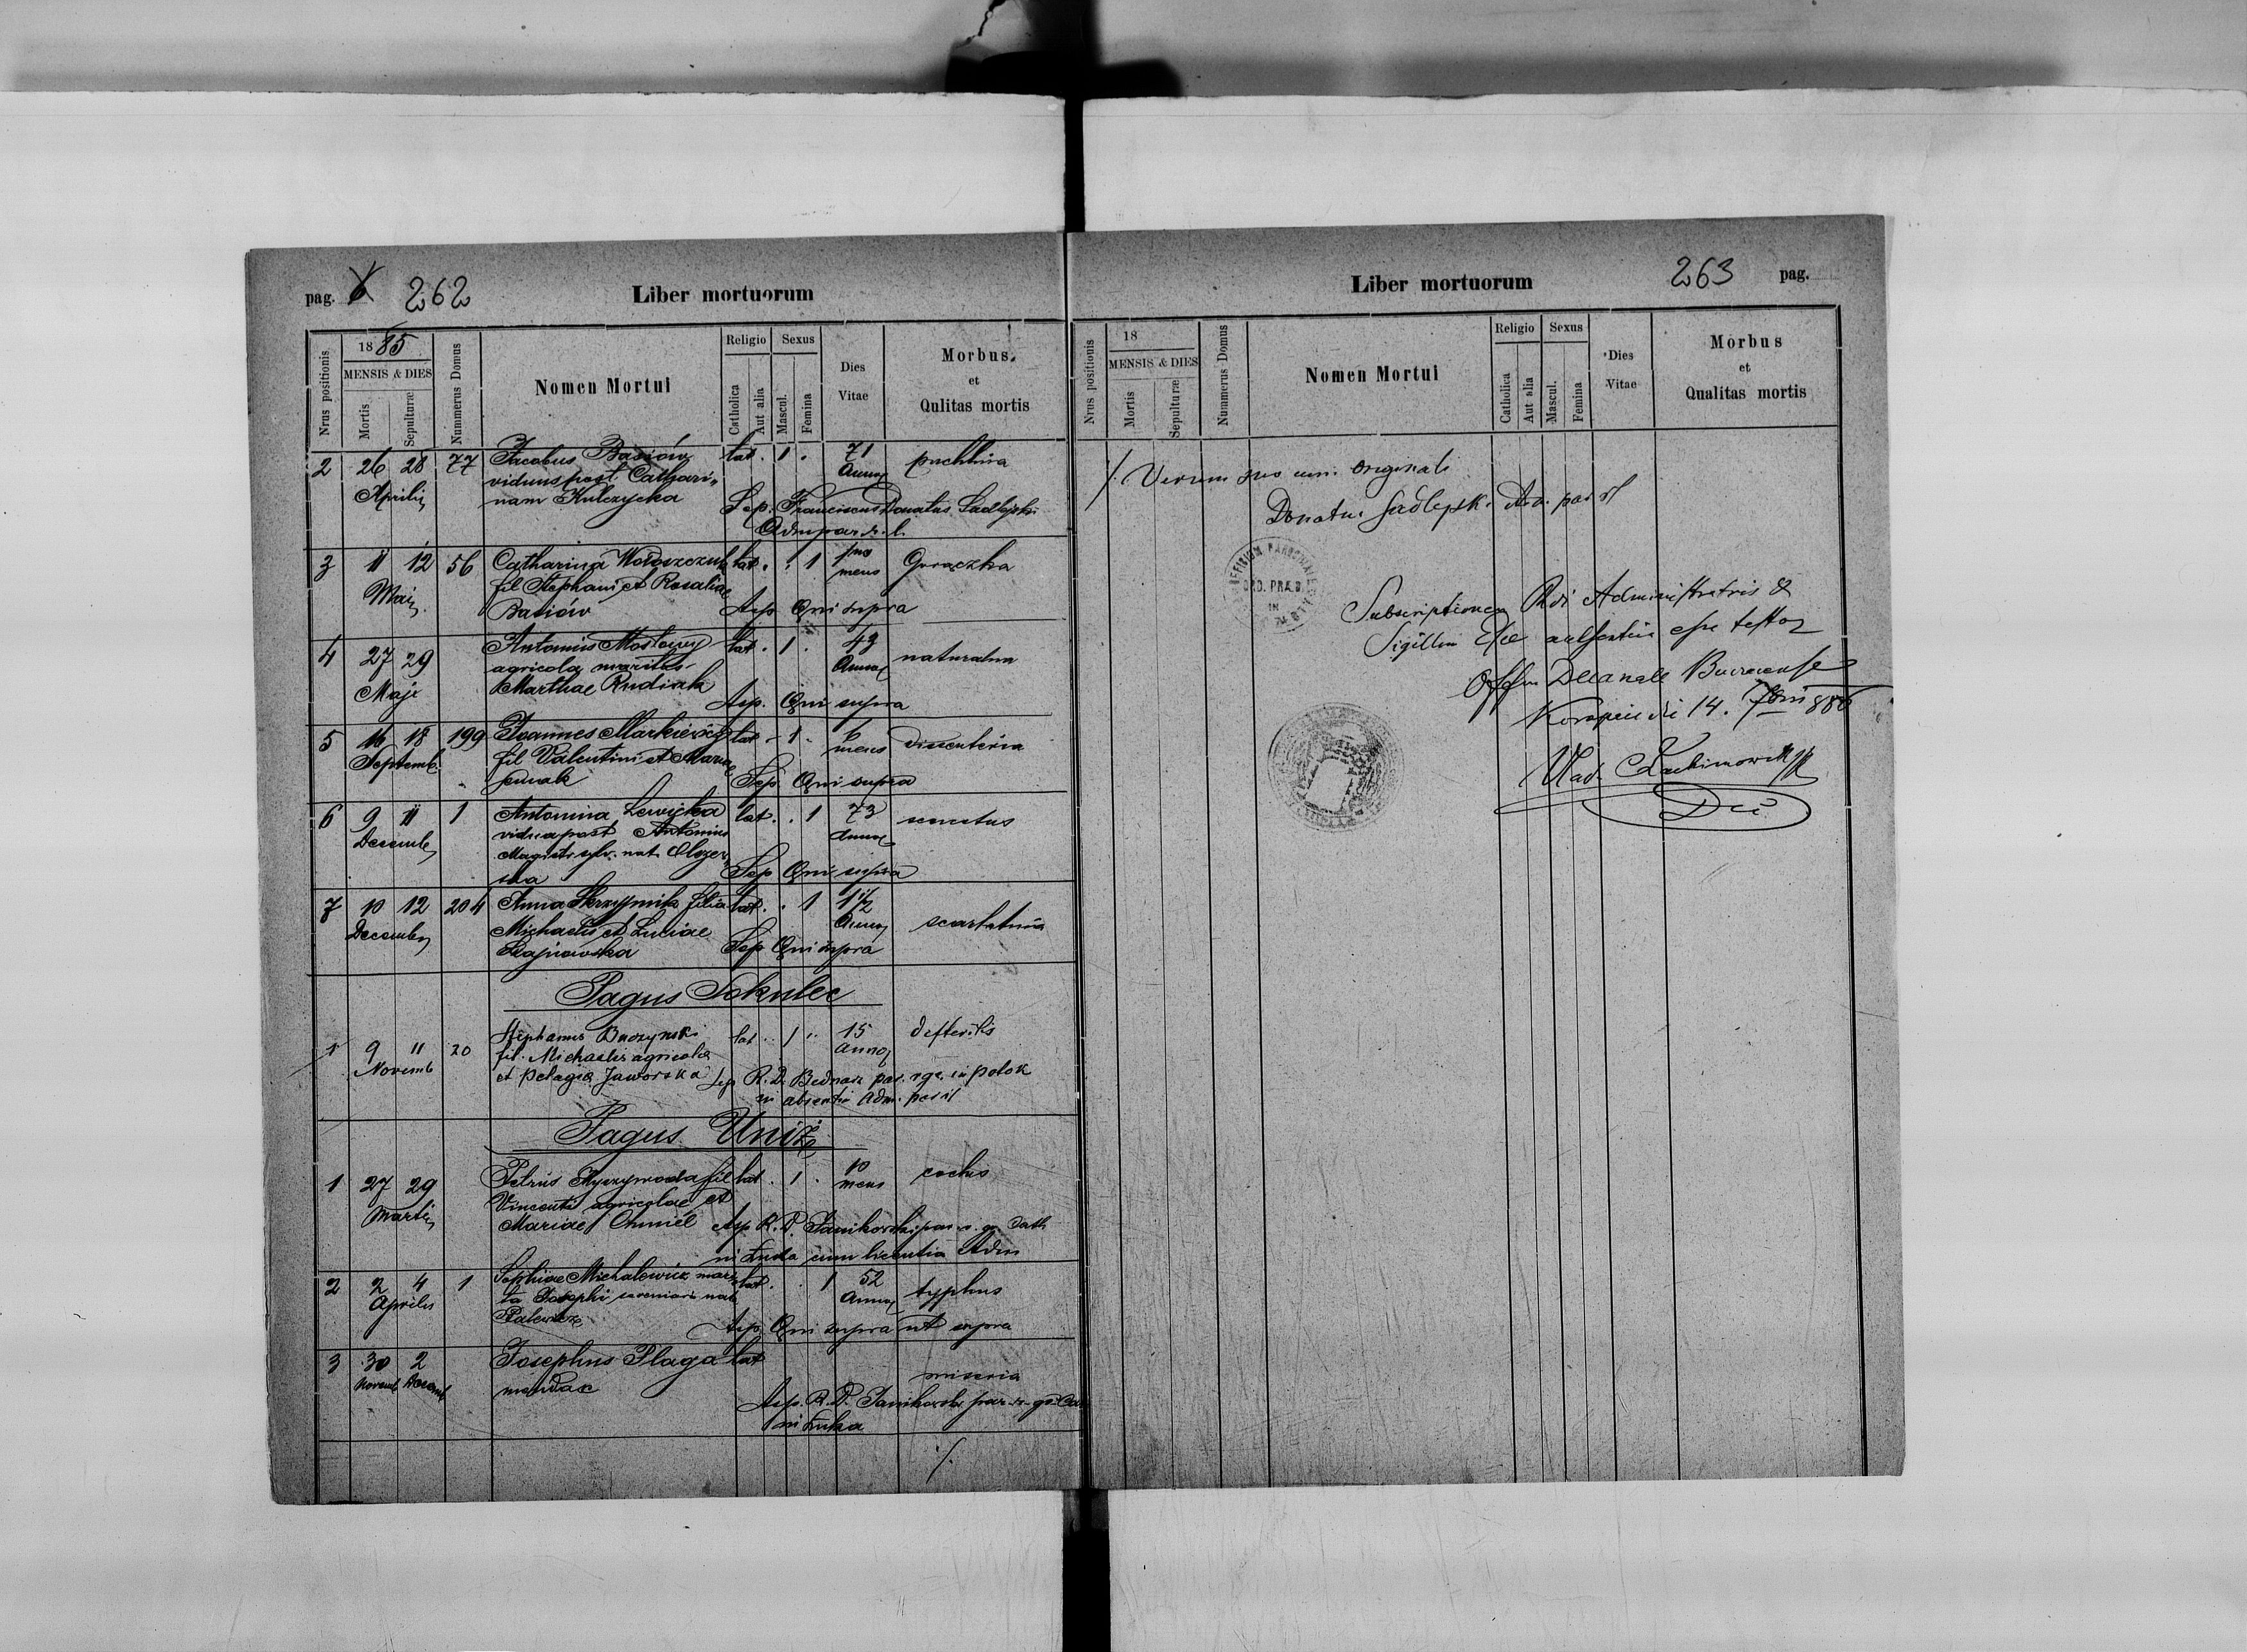 pag. 6 262 Liber mortuorum
Nrus positionis
1885
MENSIS & DIES
Mortis
Sepulturæ
Nummerus Domus
Nomen Mortui
Religio
Catholica
Aut alia
Sexus
Mascul.
Femina
Dies
Vitae
Morbus
et
Qulitas mortis
2 26 28 77 Jacobus Basiów lat. 1 . 71 puchlina
Aprilis viduus post Cathari„ Annor
nam Kulczycka Sep. Franciscus Donatus Sadlejski
Adm par r. l.
3 11 12 56 Catharina Wołoszczuk lat. . 1 1 Goraczka
Maij fil Stephani et Rosaliae mens
Basiów Sep. Qui supra
4 27 29 Antonius Mostowy lat. 1 . 43 naturalna
agricola maritus Annor
Maji Marthae Rudiak Sep. Qui supra
5 16 18 199 Joannes Markiewicz lat. 1 . 6 dissenteria
Septemb. fil Valentini et Mariae mens
Sep Qui supra
6 9 11 1 Antonina Lewicka lat. . 1 73 senectus
Decemb vidua post Antonium Annor
Magistr. sylv. nat.
ska Sep Qui supra
7 10 12 204 Anna Skrzypnik filia lat. . 1 1½ scarlatina
Decemb Michaelis et Luciae Annor
Sep Qui supra
Pagus Sokulec
1 9 11 20 Stephanus Buczynski lat. 1 15 difteritis
Novemb fil. Michaelis agricola annor
et Pelagia Jaworska Sep R. D. Bednarz par. r. gr. in Potok
in absentia Adm. par. r l
Pagus Uniż
1 27 29 Petrus fil lat. 1 . 10
Martii Vincenti agricolae et mens
Mariae Chmiel Sep R. D. Janikowski par. r. gr. Cath
in Łuka cum licentia Adm
2 2 4 1 Sophiae Michalewicz mari lat. . 1 52 typhus
Aprilis ta Josephi nat. Annor
Sep. Qui supra ut supra
3 30 2 Josephus Plaga lat
Novemb Decemb mendax miseria
Sep. R. D. Janikowski par. r. gr. Cat
in Łuka
/.
Liber mortuorum 263 pag.
Nrus positionis
18
MENSIS & DIES
Mortis
Sepulturæ
Nummerus Domus
Nomen Mortui
Religio
Catholica
Aut alia
Sexus
Mascul.
Femina
Dies
Vitae
Morbus
et
Qualitas mortis
/. Verum suo cum originali
Donatus Sadlejski Ad. par rl
Subscriptionem Rdi Administratoris &
Sigillum Eccl authentica esse testor
Offm Decanale Buczacense
Koropiec die 14. 7bris 886
Vlad.
Dec